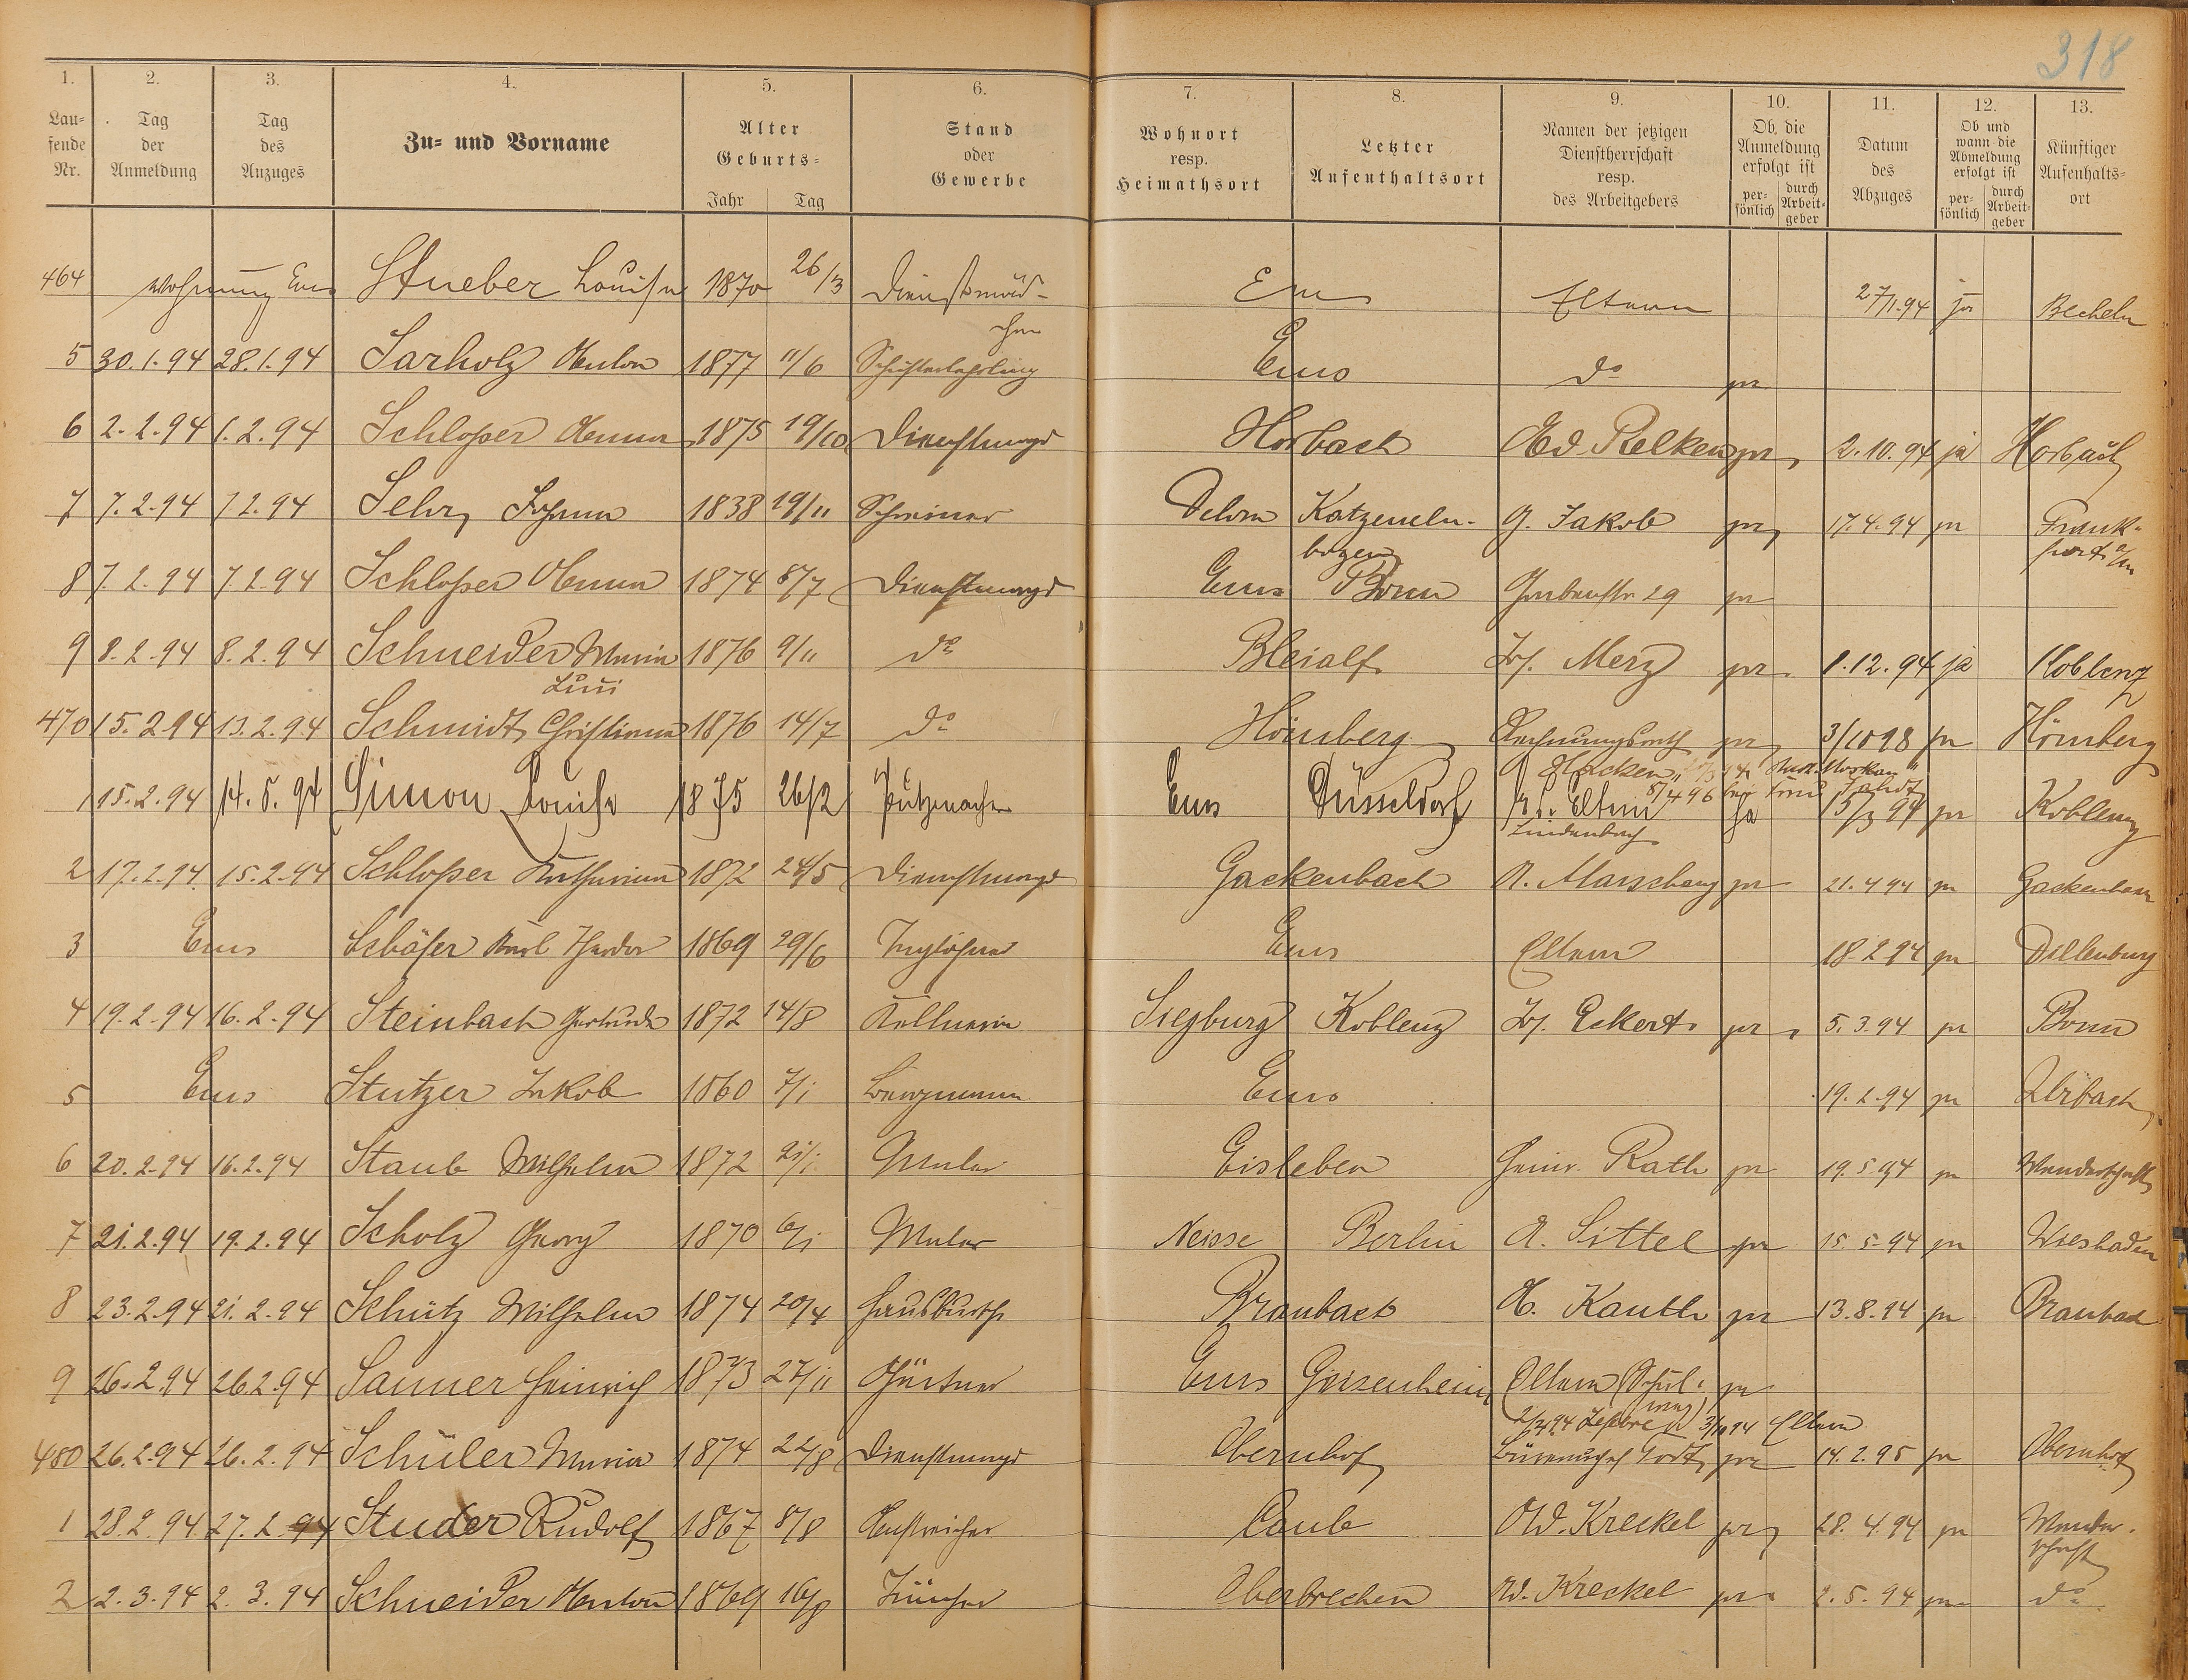 318
1. 2. 3. 4. 5. 6. 7. 8. 9. 10. 11. 12. 13.
Lau-
fende
Nr.
Tag
der
Anmeldung
Tag
des
Anzuges
Zu- und Vorname
Alter
Geburts-
Jahr Tag
Stand
oder
Gewerbe
Wohnort
resp.
Heimathsort
Letzter
Aufenthaltsort
Namen der jetzigen
Dienstherrschaft
resp.
des Arbeitgebers
Ob die
Anmeldung
erfolgt ist
per-
sönlich
durch
Arbeit-
geber
Datum
des
Abzuges
Ob und
wann die
Abmeldung
erfolgt ist
per-
sönlich
durch
Arbeit-
geber
Künftiger
Aufenthalts-
ort
464 Wohnung Ems Stueber Louise 1870 26/3 Dienstmäd- Ems Eltern 27/1.94 ja Becheln
chen
5 30.1.94 28.1.94 Sarholz Anton 1877 11/6 Schusterlehrling Ems do ja
6 2.2.94 1.2.94 Schloßer Anna 1875 19/10 Dienstmagd Horbach Ad. Relken ja 2.10.94 ja Horbach
7 7.2.94 7.2.94 Sehr Johann 1838 19/11 Schreiner Dehrn Katzeneln- G. Jakob ja 17.4.94 ja Frank-
bogen furt a/M
8 7.2.94 7.2.94 Schloßer Anna 1874 8/7 Dienstmagd Ems Bonn Grabenstr 29 ja
9 8.2.94 8.2.94 Schneider Maria 1876 9/11 do Bleialf Jos. Merz ja 1.12.94 ja Koblenz
470 15.2.94 13.2.94 Schmidt Christiana 1876 14/7 do Hömberg Rechnungsrath ja 3/10 98 ja Hömberg
1 15.2.94 14.5.94 Simon Louise 1875 26/2 Putzmacher Ems Düsseldorf Eltern ja 15/3 94 ja Koblenz
Lindenbach
2 17.2.94 15.2.94 Schloßer Katharina 1872 24/5 Dienstmagd Gackenbach A. Marschang ja 21.4.94 ja Gackenbach
3 Ems Schäfer Karl Theodor 1869 29/6 Taglöhner Ems Eltern 18.2.94 ja Dillenburg
4 19.2.94 16.2.94 Steinbach Gertrude 1872 14/8 Kellnerin Siegburg Koblenz Jos. Eckert ja 5.3.94 ja Bonn
5 Ems Stutzer Jakob 1860 7/1 Bergmann Ems 19.2.94 ja
6 20.2.94 16.2.94 Staub Wilhelm 1872 21/1 Maler Eisleben Heinr. Rath ja 19.5.94 ja Wanderschaft
7 21.2.94 19.2.94 Scholz Georg 1870 6/1 Maler Neisse Berlin A. Sittel ja 15.5.94 ja Wiesbaden
8 23.2.94 21.2.94 Schütz Wilhelm 1874 20/4 Hausbursche Braubach A. Kauth ja 13.8.94 ja Braubach
9 26.2.94 26.2.94 Sanner Heinrich 1873 27/11 Gärtner Ems Geisenheim Eltern ja
3/10 94 Eltern
480 26.2.94 26.2.94 Schüler Maria 1874 22/8 Dienstmagd Obernhof ja 14.2.95 ja Obernhof
1 28.2.94 27.2.94 Studer Rudolf 1867 8/8 Anstreicher Caub Ad. Kreckel ja 28.4.94 ja Wander-
schaft
2 2.3.94 2.3.94 Schneider Anton 1869 16/8 Tüncher Oberbrechen Ad. Kreckel ja 2.5.94 ja do